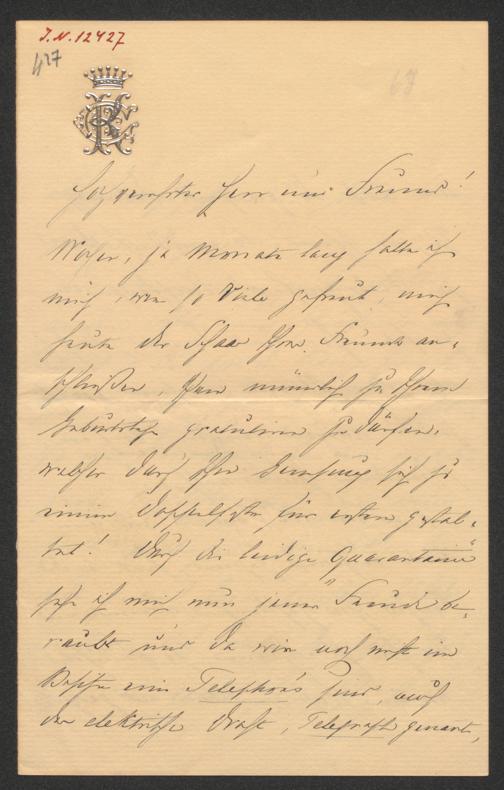 J.N. 12427
427
67
Hochverehrter Herr und Freund!
Wochen, ja Monate lang hatte ich
mich, wie so Viele gefreut, mich
heute der Schaar Ihrer Freunde an-
schließen, Ihnen mündlich zu Ihrem
Geburtstage gratuliren zu dürfen,
welcher durch Ihre Genesung sich zu
einem Doppelfeste für uns gestal-
tet! Durch die leidige "Quarantaine"
sehe ich mich nun jener Freude be-
raubt und da wir noch nicht im
Besitze eines Telephons sind, auch
der elektrische Draht, Telegraph genannt,